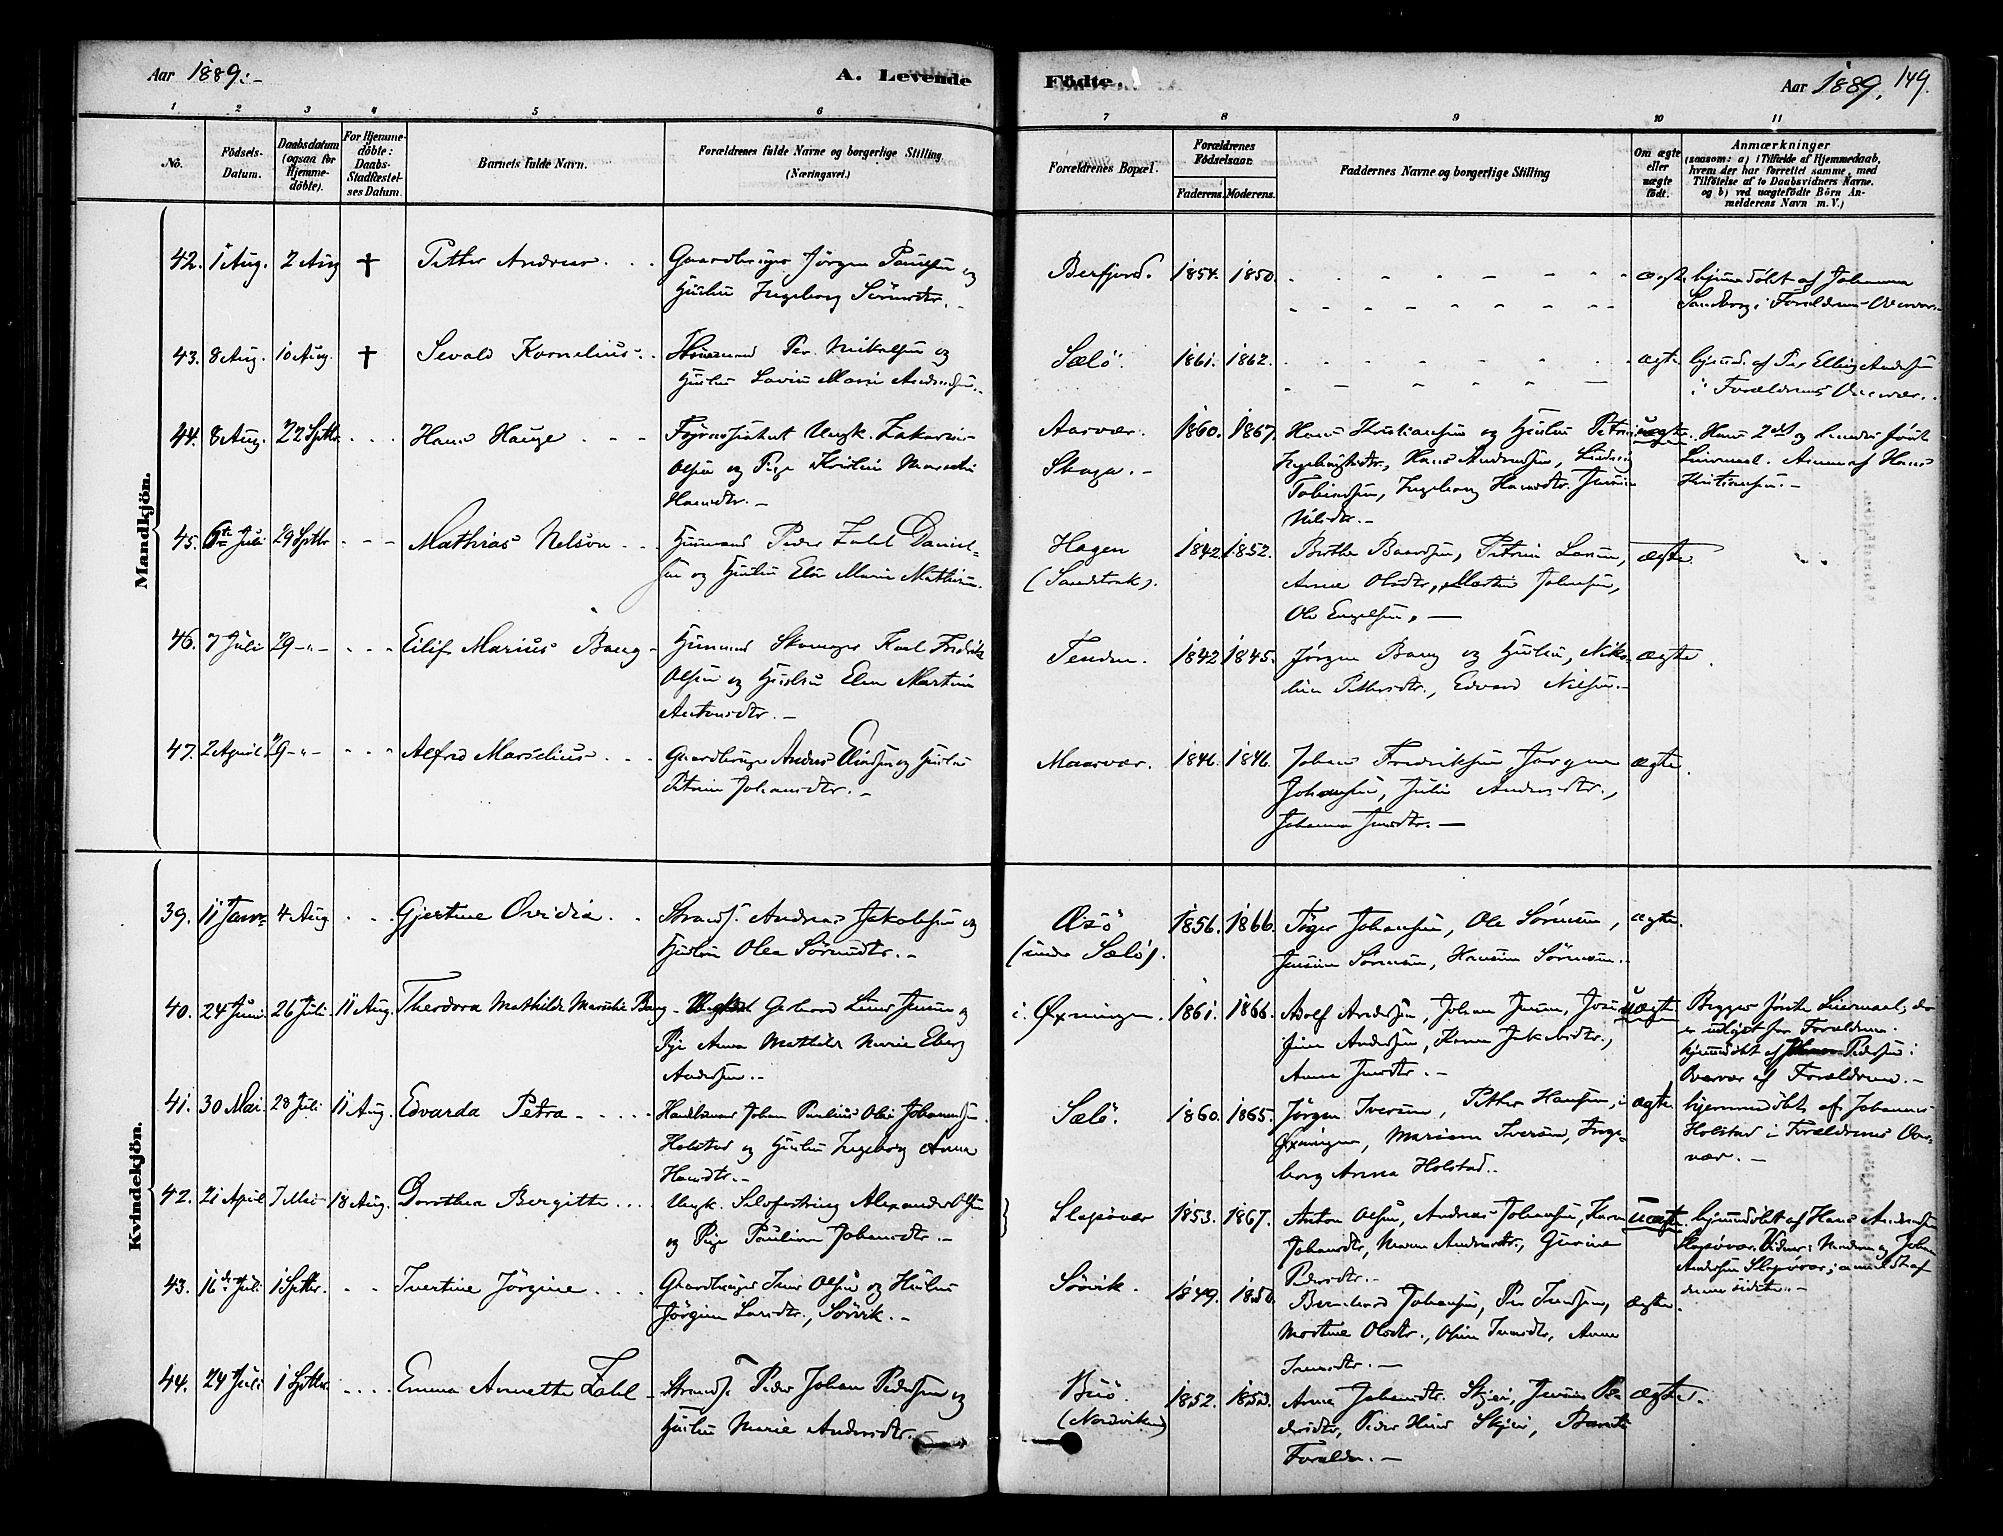 Aar 1889.
A. Levende
Födte.
Aar 1889.
149.
1 2 3 4 5 6 7 8 9 10 11
No.
Födsels-
Datum.
Daabsdatum
(ogsaa for
Hjemme-
döbte).
For Hjemme-
döbte:
Daabs-
Stadfæstel-
ses Datum.
Barnets fulde Navn.
Forældrenes fulde Navne og borgerlige Stilling
(Næringsvei.)
Forældrenes Bopæl.
Forældrenes
Födselsaar.
Faderens. Moderens.
Faddernes Navne og borgerlige Stilling
Om ægte
eller
uægte
födt.
Anmærkninger
(saasom: a) i Tilfælde af Hjemmedaab,
hvem der har forrettet samme, med
Tilföielse af to Daabsvidners Navne.
og b) ved uægtefödte Börn An-
melderens Navn m. V.)
Mandkjön.
42. 1 Aug. 2 Aug † Petter Andreas
Gaardbruger Jörgen Paulsen og
Hustru Ingeborg Sörensdtr.
Berfjord. 1854. 1850.
ægte. hjemmedöbt af Johanna
Sandberg i Forældrenes Overvær.
43. 8 Aug. 10 Aug. † Sevald Kornelius
Husmand Per Nikolsen og
Hustru Lovise Marie Andersen.
Sælö. 1861. 1862.
ægte hjemmed. af Per Elling Andersen
i Forældrenes Overvær.
44. 8 Aug. 22 Septbr. Hans Hauge
Ungk. Zakarias
Olsen og Pige Kristine
Hansdtr.
Aasvær.
Skaga.
1860. 1867.
Hans Kristiansen og Hustru
Hans Andersen, Ludvig
Tobiassen, Ingeborg Hansdtr.
Nilsdtr.
uægte. Hans 2det og hendes förste
Leiermaal. Anm. af Hans
Kristiansen.
45. 6te Juli 29 Septbr Mathias Nelson
Husmand Peder Zahl Daniel-
sen og Hustru Elen Marie Mathisen.
Hagen
(Sandstrak).
1842 1852.
Berthe Baardsen, Petrine Larsen,
Anne Olsdtr., Martin Johansen,
Ole Engelsen.
ægte.
46. 7 Juli 29 Eilif Marius Bang
Husmand Skomager Karl Fredrik
Olsen og Hustru Elen Martine
Antonsdtr.
Tenden. 1842 1845.
Jörgen Bang og Hustru, Niko-
line Pettersdtr., Edvard Nilsen.
ægte.
47. 2 April 29 Alfred Marselius
Gaardbruger Andreas og Hustru
Petrine Johansdtr.
Maasvær. 1846. 1846.
Johan Fredriksen Jörgen
Johansen, Julie Andersdtr.,
Johanna Jensdtr.
ægte.
Kvindekjön.
39. 11 Janr 4 Aug Gjertine Ovidia
Strands. Andreas Jakobsen og
Hustru Olea Sörensdtr.
Œsö
(under Sælö).
1856. 1866.
Töger Johansen, Ole Sörensen,
Jensine Sörensen, Hansine Sörensen.
ægte.
40. 24 Juni 26 Juli 11 Aug. Theodora Mathilde Marselie Bang
Ungk. Gerhard Lund Jensen og
Pige Anna Mathilde Marie Eberg
Andersen.
i. Øxningen. 1861. 1866.
Adolf Andersen, Johan Jensen,
Andersen, Karen Jakobsdtr.,
Anna Jensdtr.
uægte. Begges förste Leiermaal, de
er udlyst for Forældrene.
hjemmedöbt af Pedersen i
Overvær af Forældrene.
41. 30 Mai. 28 Juli 11 Aug. Edvarda Petra
Handelsmand Johan Paulius Olai Johannesen
Holstad og Hustru Ingeborg Anna
Hansdtr.
Sælö. 1860. 1865.
Jörgen Iversen, Petter Hansen,
Øxningen, Mariann Iversen, Inge-
borg Anna Holstad.
ægte. hjemmedöbt af Johannes
Holstad i Forældrenes Over-
vær.
42. 21 April 7 Mai 18 Aug. Dorothea Bergitte
Ungk. Alexander Olsen
og Pige Pauline Johansdtr.
Slapövær 1853. 1867.
Anton Olsen, Andreas Johansen, Karen
Johansdtr., Maren Andersdtr., Gurine
Pedersdtr.
uægte. hjemmedöbt af Hans Andersen
Slapövær. Vidner: og Johan
Andersen Slapövær; anmeldt af
denne sidste.
43. 16de Juli 1 Septbr. Ivertine Jörgine
Gaardbruger Iver Olsen og Hustru
Jörgine Larsdtr., Sövik.
Sövik. 1849. 1850.
Bernhard Johansen, Per Iversen,
Martine Olsdtr., Oline Iversdtr, Anne
Iversdtr.
ægte.
44. 24 Juli 1 Septbr. Emma Annette Zahl
Strands. Peder Johan Pedersen og
Hustru Marie Andersdtr.
Buö
(Nordviken)
1852. 1853.
Anne Johansdtr. Skjei, Jensine Pe-
dersdtr, Peder Hans Skjei, Barnets
Forældre.
ægte.